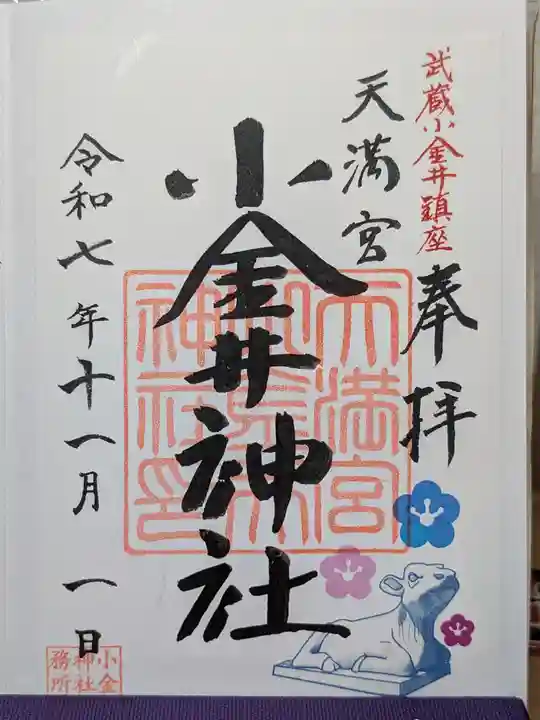 武蔵小金井鎮座
奉拝
天満宮
小金井神社
令和七年十一月一日
天満宮
小金井
神社印
小金
神社
務所